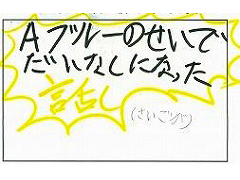 Aブルーのせいで
だいなしになった
言舌し
(さいごのパ)